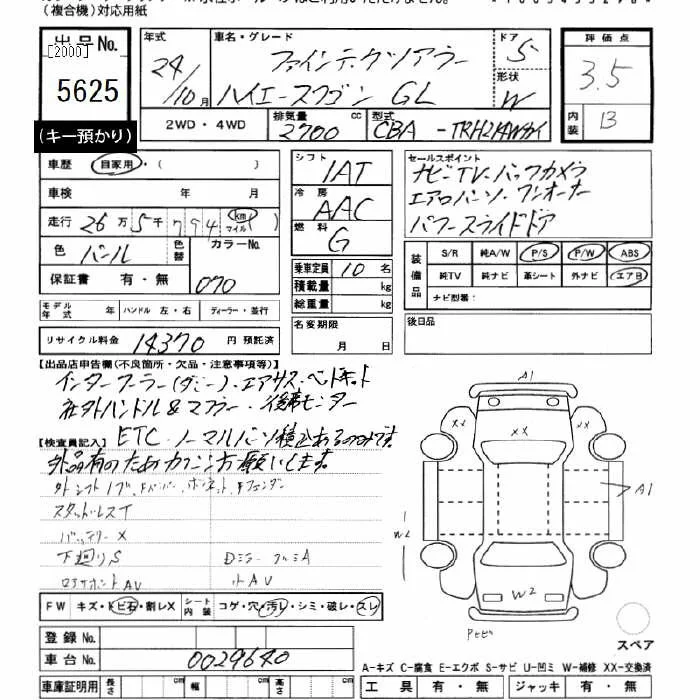 (複合機)対応用紙
出品No.
[2000]
5625
(キー預かり)
年式
24/10月
車名・グレード
ファインテックツアラー
ハイエースワゴン GL
ドア
5
形状
W
評価点
3.5
内装
B
2WD・4WD
排気量
2700
cc
型式
CBA
車歴
自家用・( )
車検 年 月
走行 26万5千794 km マイル
色 パール
色替
カラーNo.
070
保証書 有・無
シフト
IAT
冷房
AAC
燃料
G
乗車定員 10名
積載量 kg
総重量 kg
セールスポイント
ナビTV・バックカメラ
エアロバンパー・ワンオーナー
パワースライドドア
装備品
S/R 純A/W P/S P/W ABS
純TV 純ナビ 革シート 外ナビ エアB
ナビ型番:
モデル年式 年 ハンドル 左・右 ディーラー・並行
名変期限
月 日
後日品
リサイクル料金 14370 円 預託済
【出品店申告欄(不良箇所・欠品・注意事項等)】
インタークーラー(ダミー)・エアサス・ベッドキット
社外ハンドル&マフラー・後席モニター
【検査員記入】
ETC・ノーマルバンパー
外品有のため
お願いします
スタッドレスT
バッテリーX
下廻りS
AV
AV
A1
XX
XX
XX
A1
W2
W2
FW キズ・トビ石・割レX
シート内装 コゲ・穴・汚レ・シミ・破レ・スレ
登録No.
車台No. 0029640
スペア
A-キズ C-腐食 E-エクボ S-サビ U-凹ミ W-補修 XX-交換済
車庫証明用 長さ cm 幅 cm 高さ cm
工具 有・無 ジャッキ 有・無